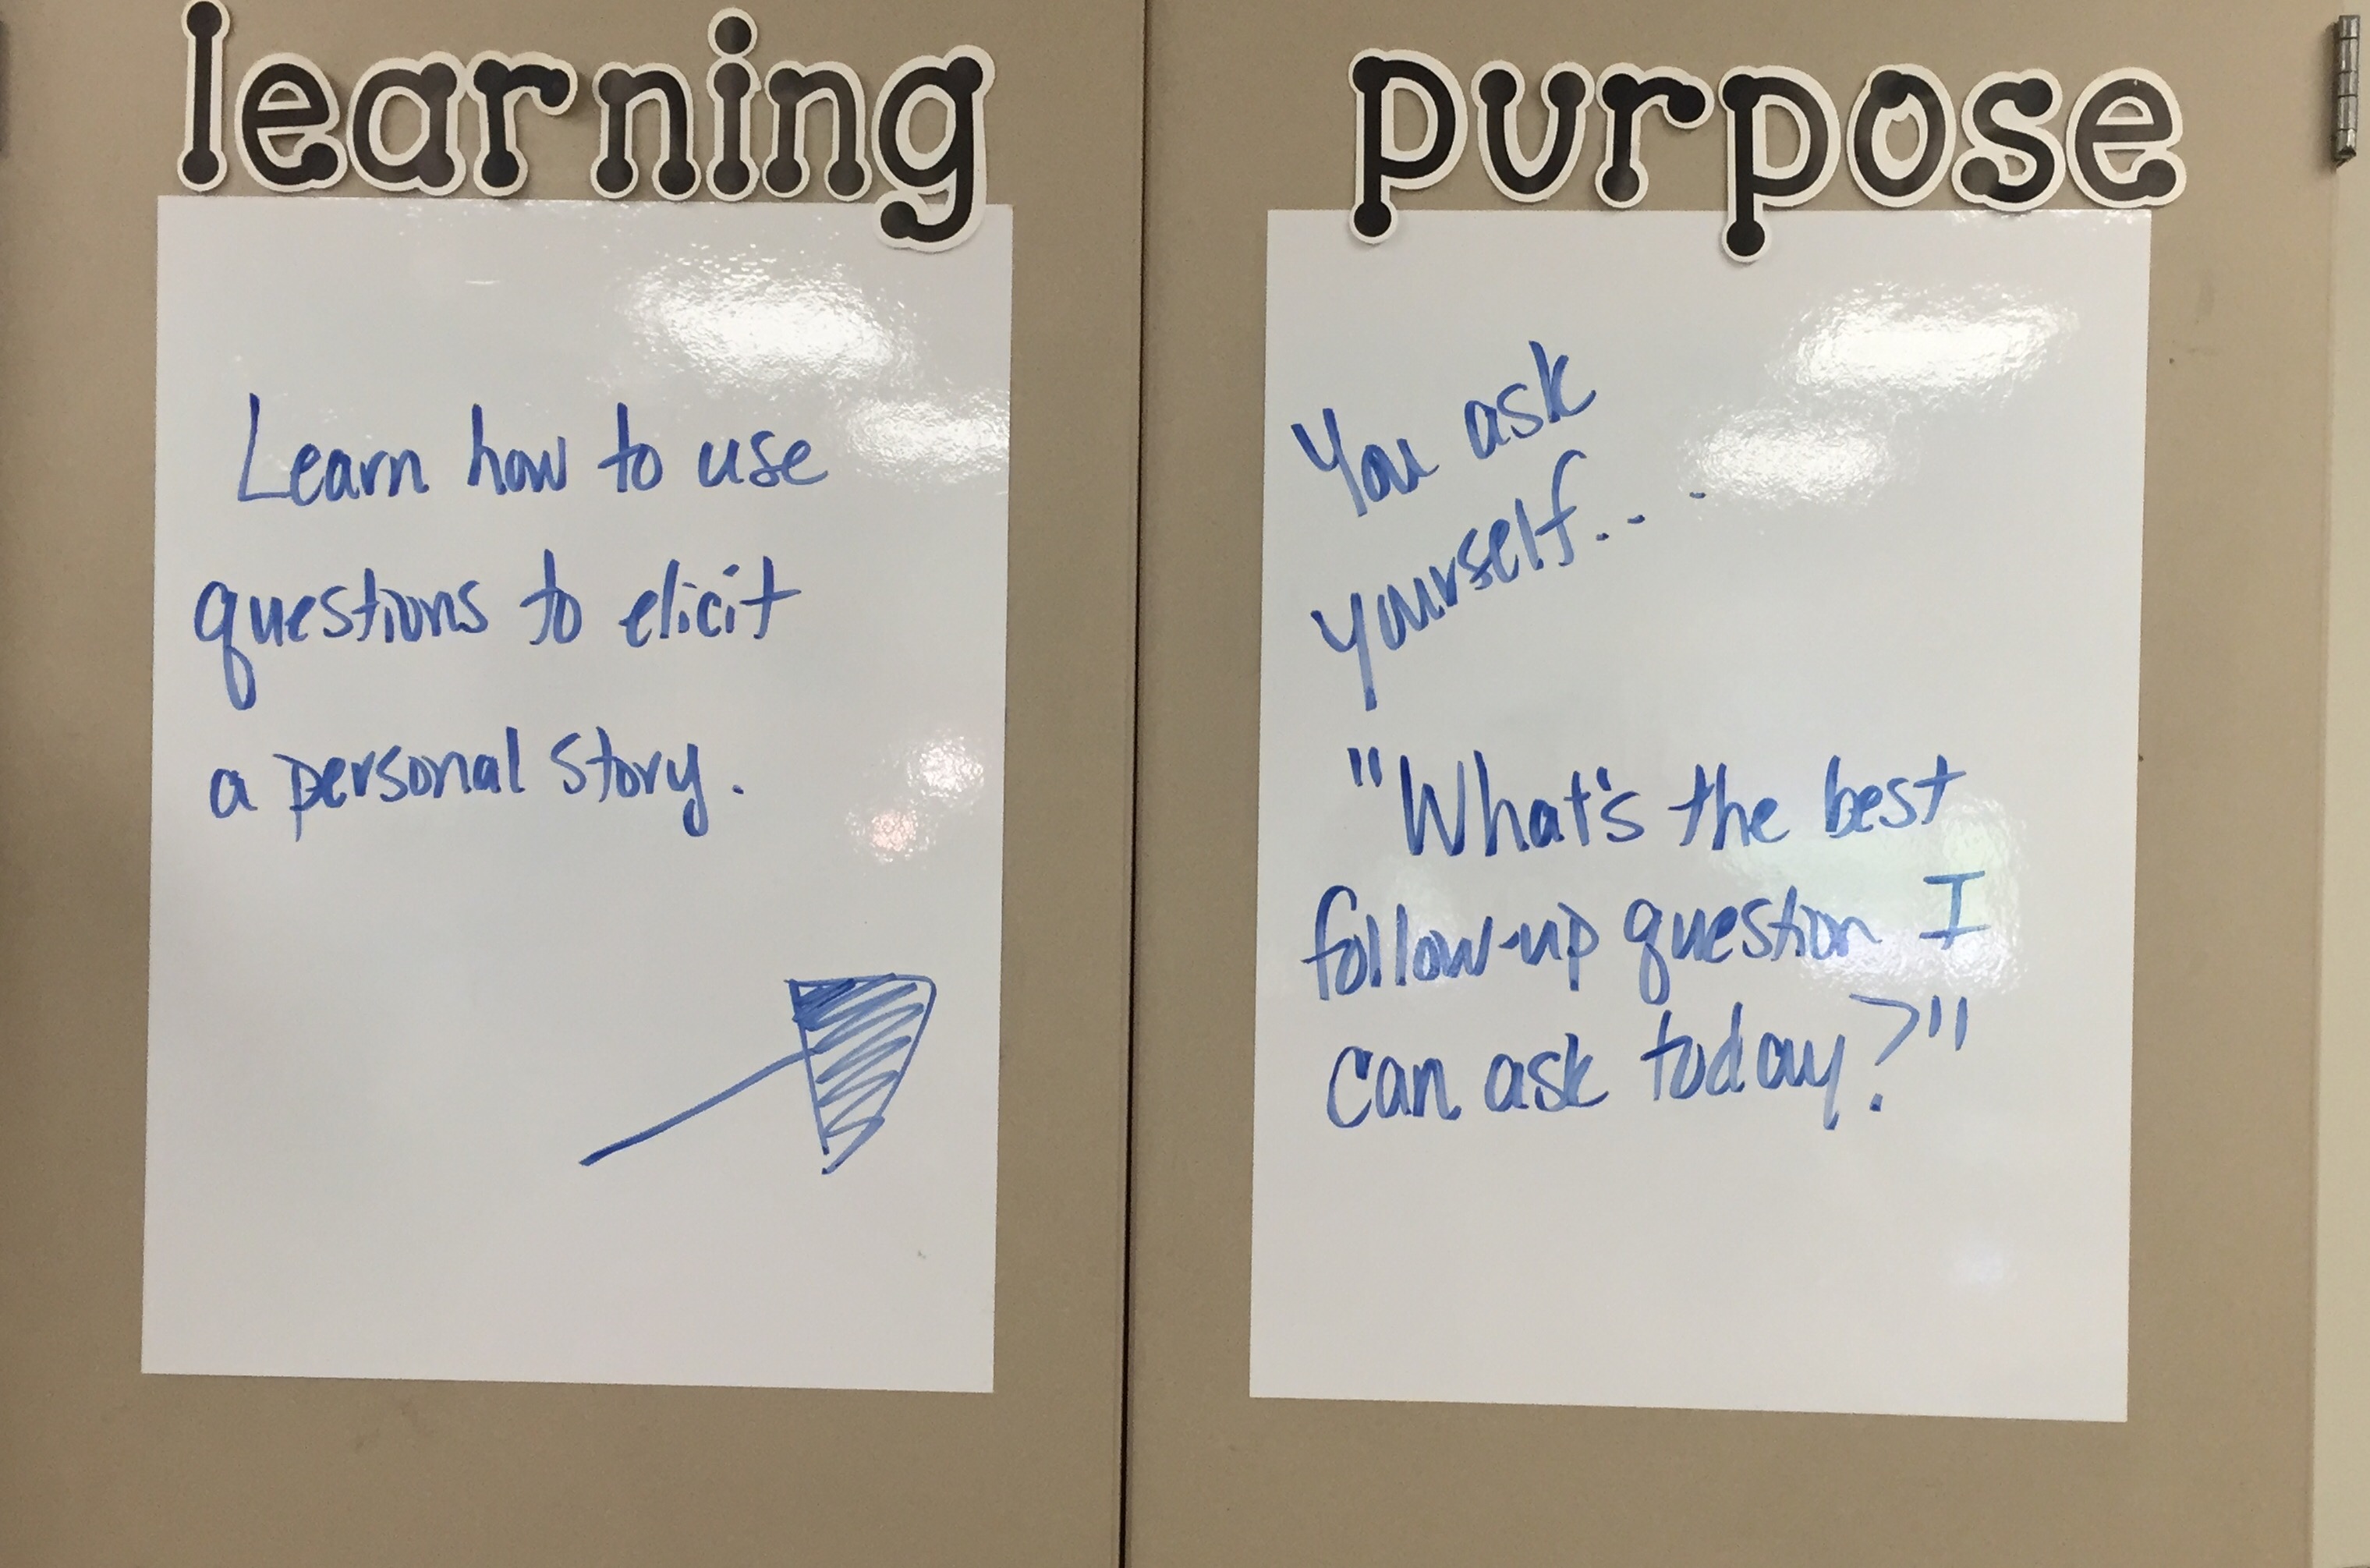 learning
Learn how to use
questions to elicit
a personal story.
purpose
You ask
yourself....
"What's the best
follow-up question I
can ask today?"